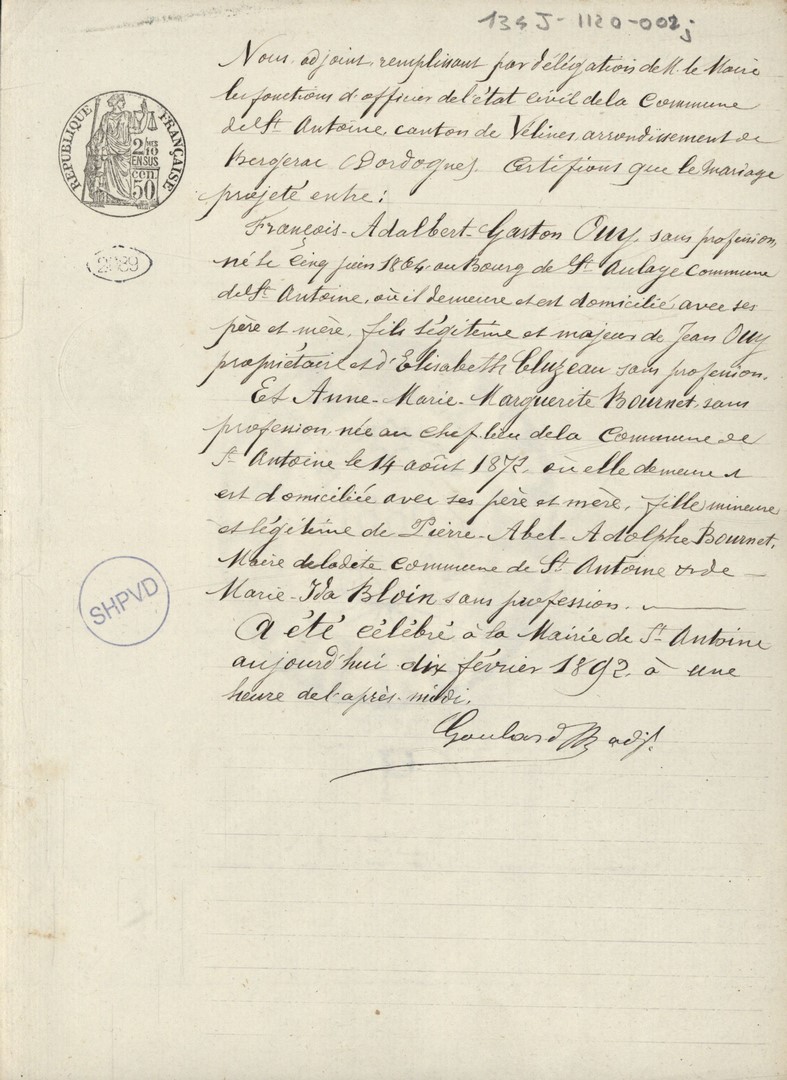 134J-1120-002j
Nous adjoint remplissant par délégation de M. le Maire
les fonctions d'officier de l'état Civil de la Commune
de St Antoine canton de Vélines, arrondissement de
Bergerac (Dordogne). Certifions que le Mariage
projeté entre:
RÉPUBLIQUE FRANÇAISE
2/10
EN SUS
50 cen
François-Adalbert-Gaston Ouy, sans profession,
né le Cinq juin 1864 au Bourg de St Aulaye Commune
2989
de St Antoine, où il demeure et est domicilié avec ses
père et mère, fils légitime et majeur de Jean Ouy
propriétaire et d'Elisabeth Cluzeau sans profession.
Et Anne-Marie-Marguerite Bournet, sans
profession, née au chef-lieu de la Commune de
St Antoine le 14 août 1872, où elle demeure et
est domiciliée avec ses père et mère, fille mineure
et légitime de Pierre-Abel-Adolphe Bournet,
Maire de la dite Commune de St Antoine et de
SHPVD
Marie-Ida Bloin sans profession.
A été célébré à la Mairie de St Antoine
aujourd'hui dix février 1892, à une
heure de l'après-midi.
Goulard adjt.